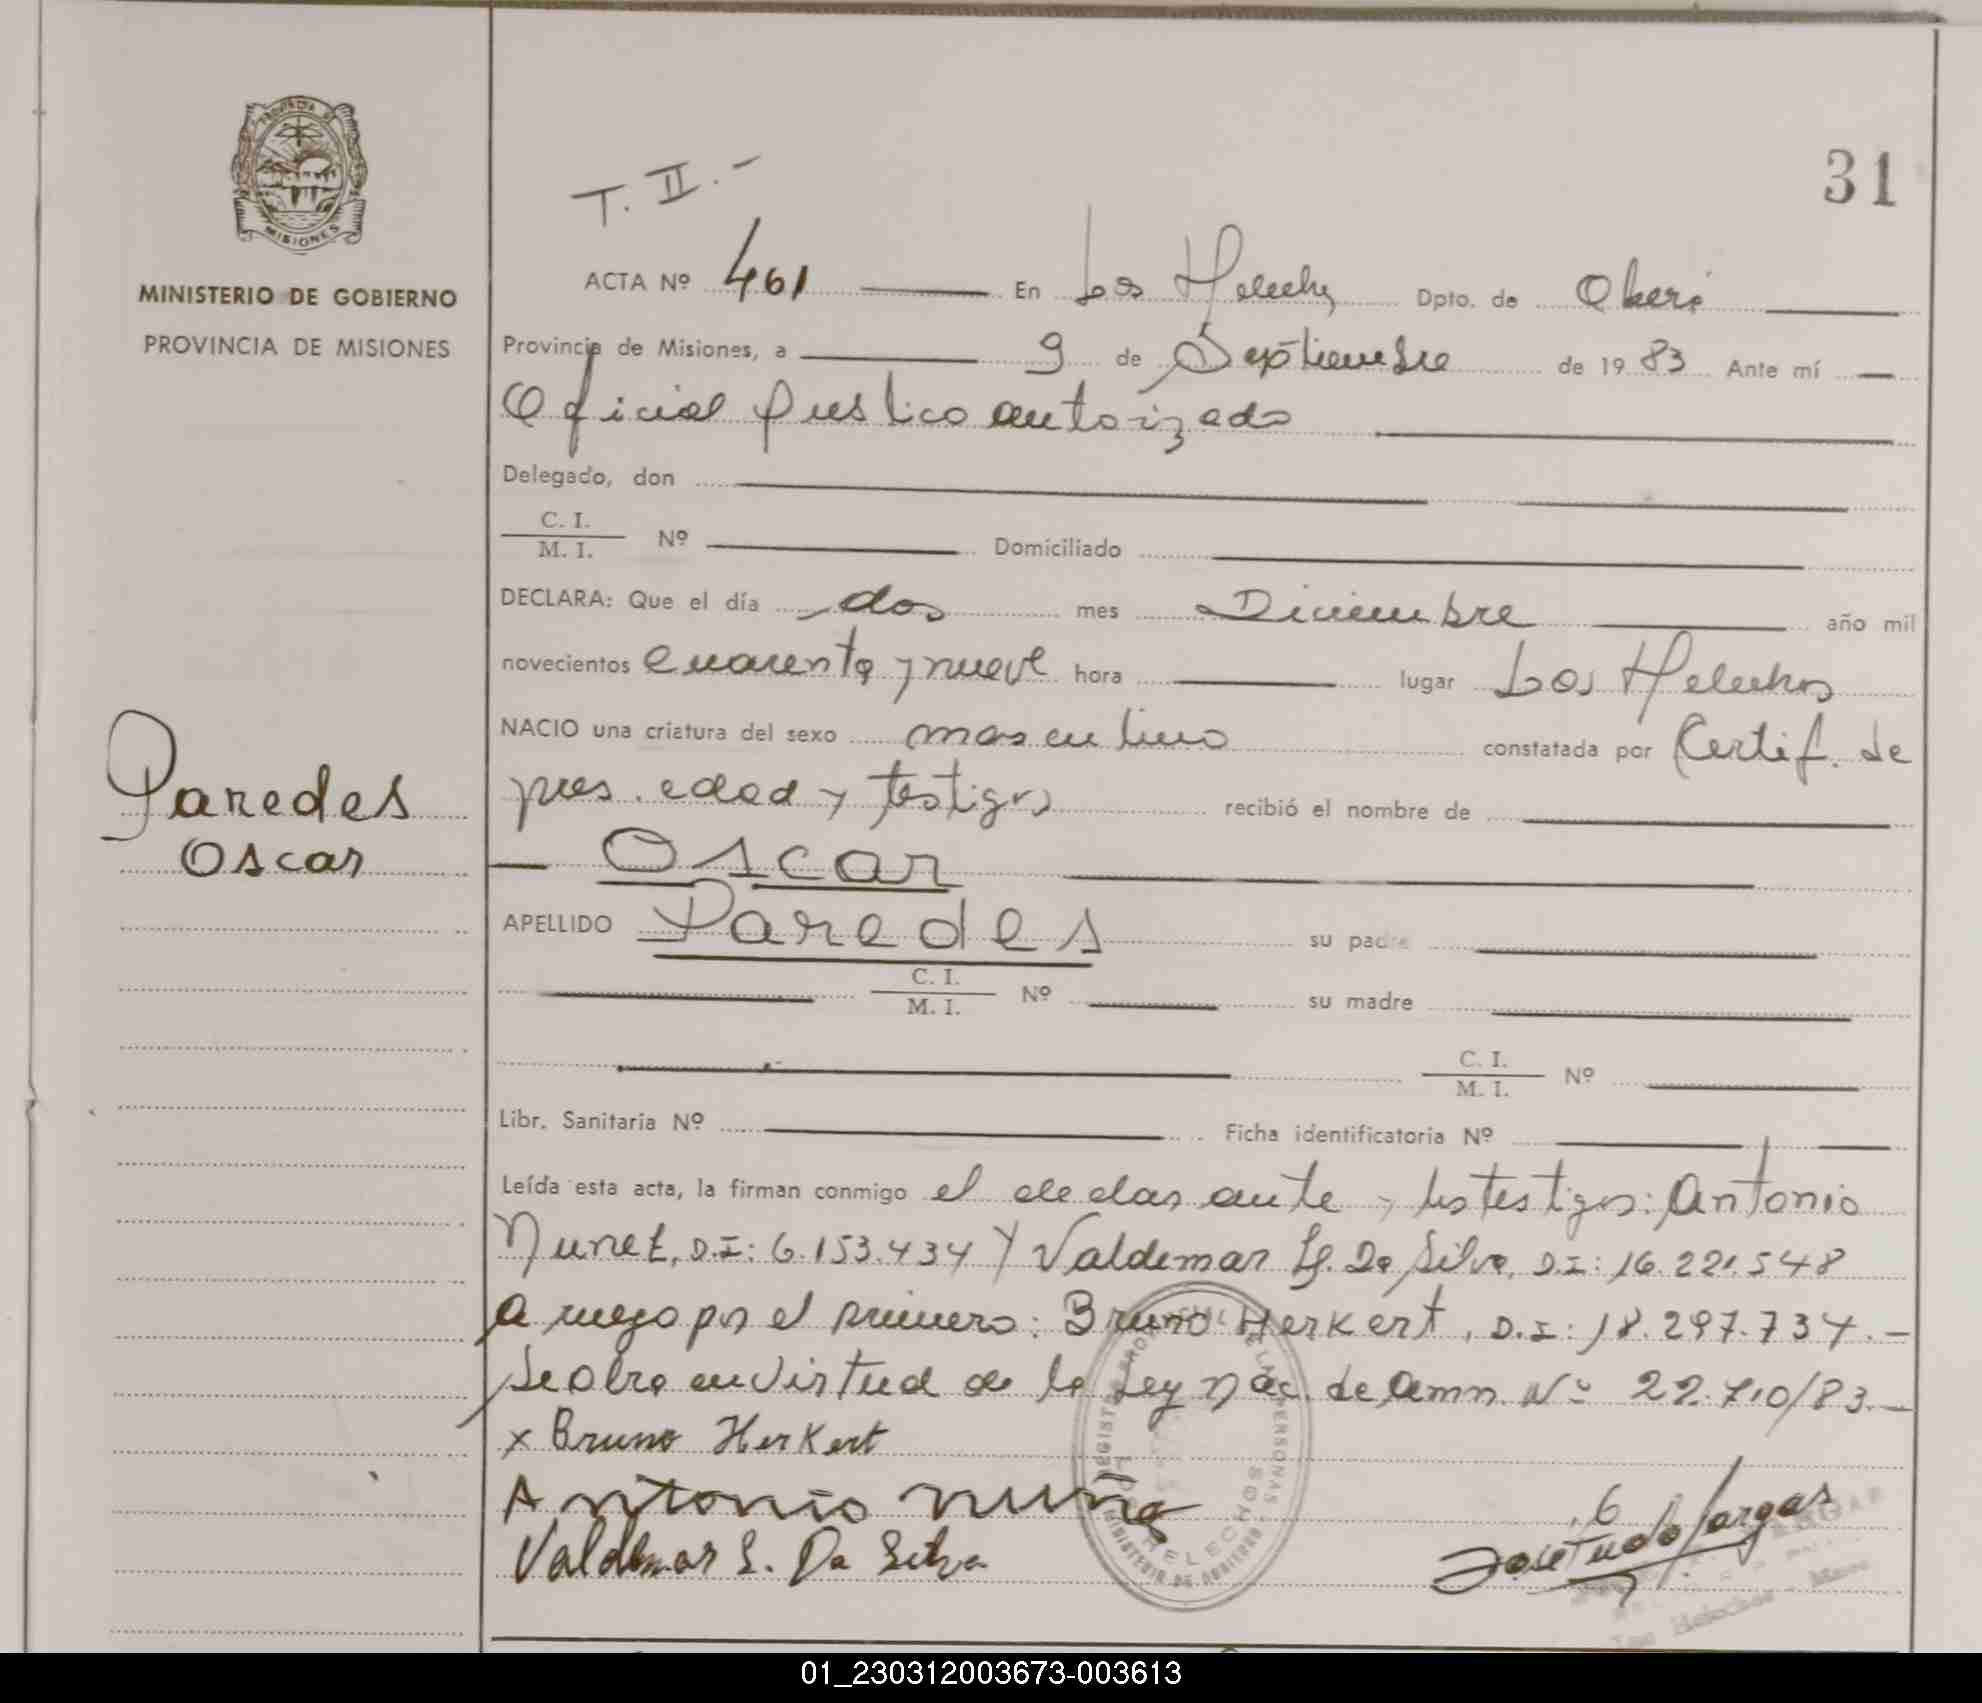 PROVINCIA DE
MISIONES
MINISTERIO DE GOBIERNO
PROVINCIA DE MISIONES
Paredes
Oscar
31
T. II.-
ACTA Nº 461 En Los Helechos Dpto. de Oberá
Provincia de Misiones, a 9 de Septiembre de 1983 Ante mí
Oficial Publico autorizado
Delegado, don
C. I.
M. I. Nº Domiciliado
DECLARA: Que el día dos mes Diciembre año mil
novecientos cuarenta y nueve hora lugar Los Helechos
NACIO una criatura del sexo masculino constatada por Certif. de
pres. edad y testigos recibió el nombre de
Oscar
APELLIDO Paredes su padre
C. I.
M. I. Nº su madre
C. I.
M. I. Nº
Libr. Sanitaria Nº Ficha identificatoria Nº
Leída esta acta, la firman conmigo el declarante y los testigos: Antonio
Nunez, D.I: 6.153.434 Y Valdemar Da Silva, D.I: 16.221.548
A ruego por el primero: Bruno Herkert, D.I: 18.297.734.-
Se obra en virtud de la Ley Nac. de Amn. Nº 22.710/83.-
x Bruno Herkert
Antonio nuñe
Valdemar S. Da Silva
Jose Tudo Vargas
LOS HELECHOS
MINISTERIO DE GOBIERNO
01_230312003673-003613